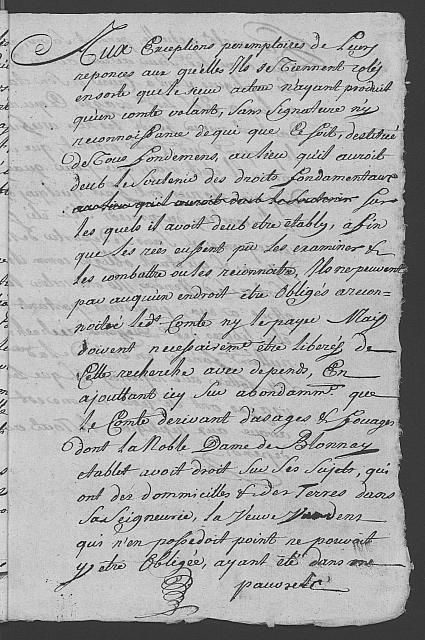 Aux Exceptions peremptoires de Leurs
reponces aux quelles Ils se Tiennent
ensorte que le sieur acteur n'ayant produit
qu'un comte volant, sans signature n'y
reconnoissance de qui que Ce soit, destitué
de Tous fondemens, au lieu qu'il auroit
deub le soutenir des droits fondamentaux
au lieu qu'il auroit deub le soutenir sur
les quels il avoit deub etre étably, afin
que les rées eussent pu les examiner &
les combattre ou les reconnoitre, Ils ne peuvent
par auqu'un endroit etre Obligés a recon-
noitre led.t Comte ny le payer Mais
doivent necessairem.t etre liberés de
Cette recherche avec depends, En
ajouttant icy sur abondamm.t que
le Comte derivant d'asages & fouages
dont la Noble Dame de Blonnay
etablet avoit droit sur ses sujets, qui
ont des dommicilles & des Terres dans
sa seigneurie, la Veuve
qui n'en possedoit point ne pouvoit
y etre Obligée, ayant été dans une
pauvreté